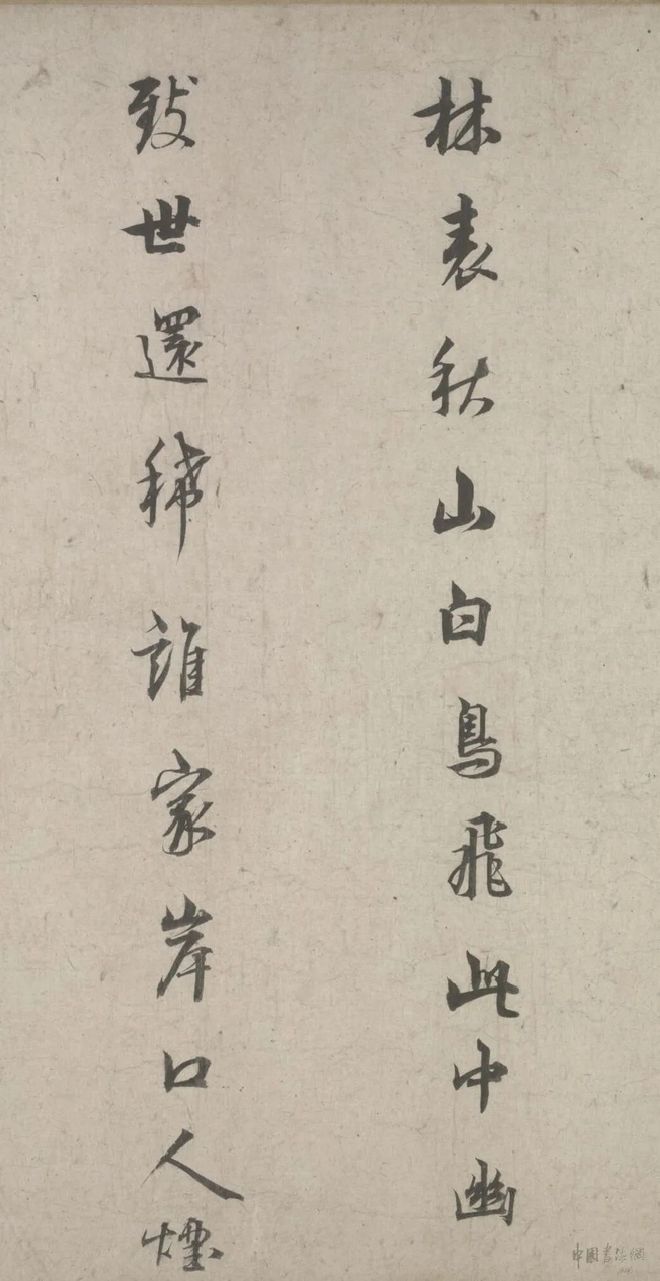 林表秋山白鳥飛此中幽
致世還稀誰家岸口人煙
中國書法網